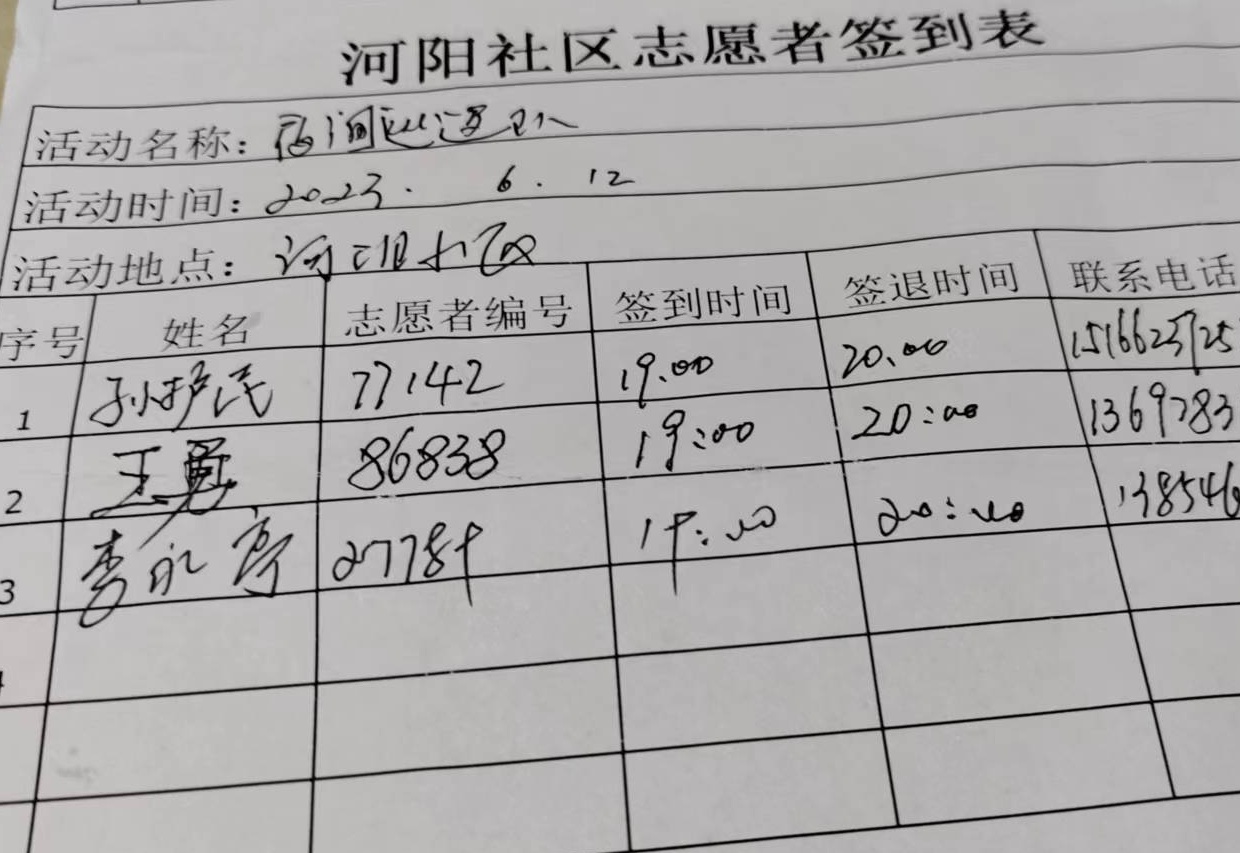 河阳社区志愿者签到表
活动名称：夜间巡逻队
活动时间：2023. 6. 12
活动地点：河阳社区
序号 姓名 志愿者编号 签到时间 签退时间 联系电话
1 孙护民 77142 19.00 20.00
2 王勇 86838 19:00 20:00 1369783
3 李永亭 27789 19:00 20:00 138546